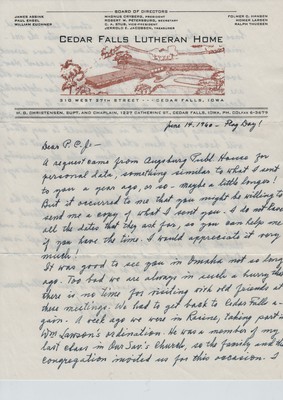 BOARD OF DIRECTORS
JAMES ABBING
PAUL ENGEL
WILLIAM ZUZNNER
MAGNUS CRIBERG, PRESIDENT
ROBERT H. PETERSBURG, SECRETARY
C. A. STUB, VICE-PRESIDENT
JERROLD E. JACOBSON, TREASURER
FOLMER C. HANSEN
HOMER LARSEN
RALPH THUESEN
CEDAR FALLS LUTHERAN HOME
210 WEST 27TH STREET CEDAR FALLS, IOWA
H. S. CHRISTENSEN, SUPT. AND CHAPLAIN, 1227 CATHERINE ST., CEDAR FALLS, IOWA, PH. COlfax 6-3679
June 14, 1960 - Flag Day!
Dear P.C.J:-
A request came from Augsburg Publ House for
personal data, something similar to what I sent
to you a year ago, or so - maybe a little longer!
But it occurred to me that you might be willing to
send me a copy of what I sent you. I do not have
all the dates that they ask for, so you can help me
if you have the time. I would appreciate it very
much!
It was good to see you in Omaha not so long
ago. Too bad we are always in such a hurry that
there is no time for visiting with old friends at
these meetings. We had to get back to Cedar Falls a-
gain. A week ago we were in Racine, taking part in
Wm Lawson's ordination. He was a member of my
last class in Our Sav's Church, so the family and the
congregation invited us for this occasion. I